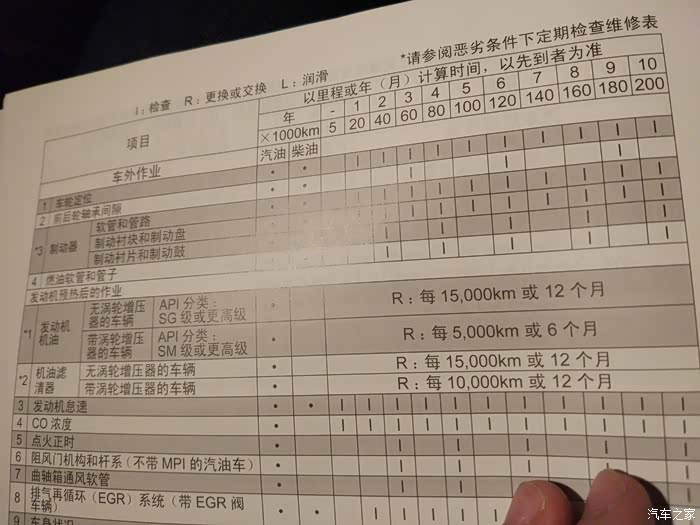 *请参阅恶劣条件下定期检查维修表
I：检查 R：更换或交换 L：润滑
项目 以里程或年（月）计算时间，以先到者为准
年 - 1 2 3 4 5 6 7 8 9 10
×1000km 5 20 40 60 80 100 120 140 160 180 200
汽油 柴油
车外作业
1 车轮定位 • •
2 前后轮轴承间隙 • •
*3 制动器 软管和管路
制动衬块和制动盘
制动衬片和制动鼓
4 燃油软管和管子
发动机预热后的作业
*1 发动机机油 无涡轮增压器的车辆 API 分类：SG 级或更高级 • R：每 15,000km 或 12 个月
带涡轮增压器的车辆 API 分类：SM 级或更高级 • R：每 5,000km 或 6 个月
*2 机油滤清器 无涡轮增压器的车辆 • R：每 15,000km 或 12 个月
带涡轮增压器的车辆 • R：每 10,000km 或 12 个月
3 发动机怠速 • • I I I I I I I I I I
4 CO 浓度 • I I I I I I I I I I
5 点火正时 • I I I
6 阻风门机构和杆系（不带 MPI 的汽油车） • I I I
7 曲轴箱通风软管 •
8 排气再循环（EGR）系统（带 EGR 阀车辆） • •
9 车身状况
汽车之家